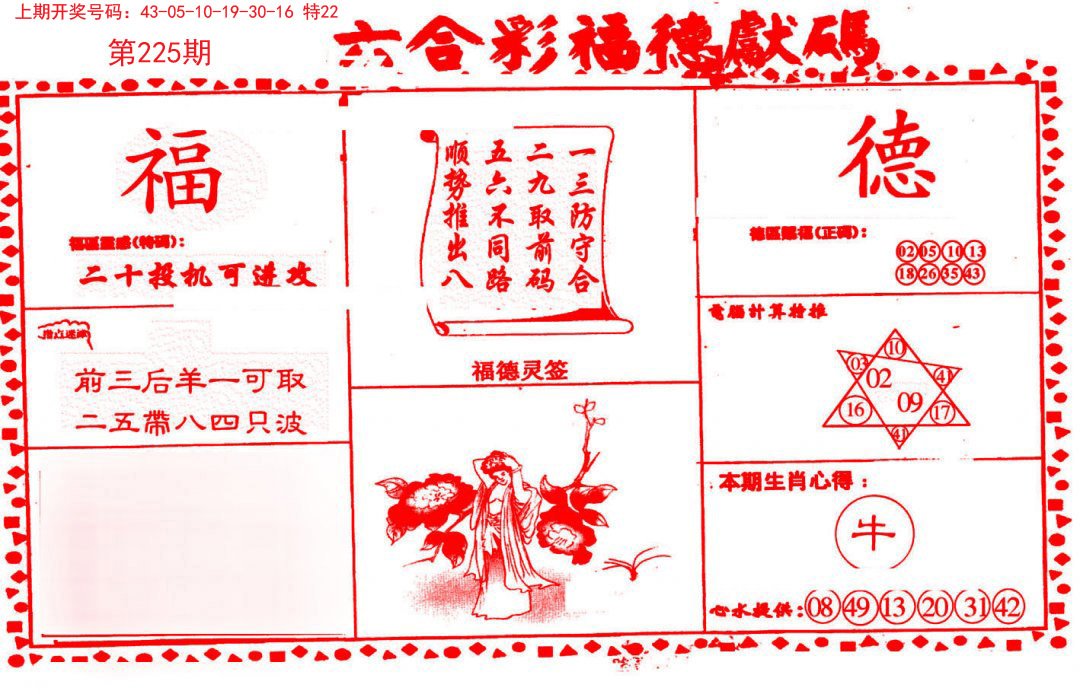 上期开奖号码：43-05-10-19-30-16 特22
第225期
六合彩福德獻碼
福
福區靈感(特碼)：
二十投机可进攻
指点迷津
前三后羊一可取
二五帶八四只波
一三防守合
二九取前码
五六不同路
顺势推出八
福德灵签
德
德區賜福(正碼)：
02 05 10 13
18 26 35 43
電腦計算特推
10
03 02 41
16 09 17
41
本期生肖心得：
牛
心水提供：08 49 13 20 31 42